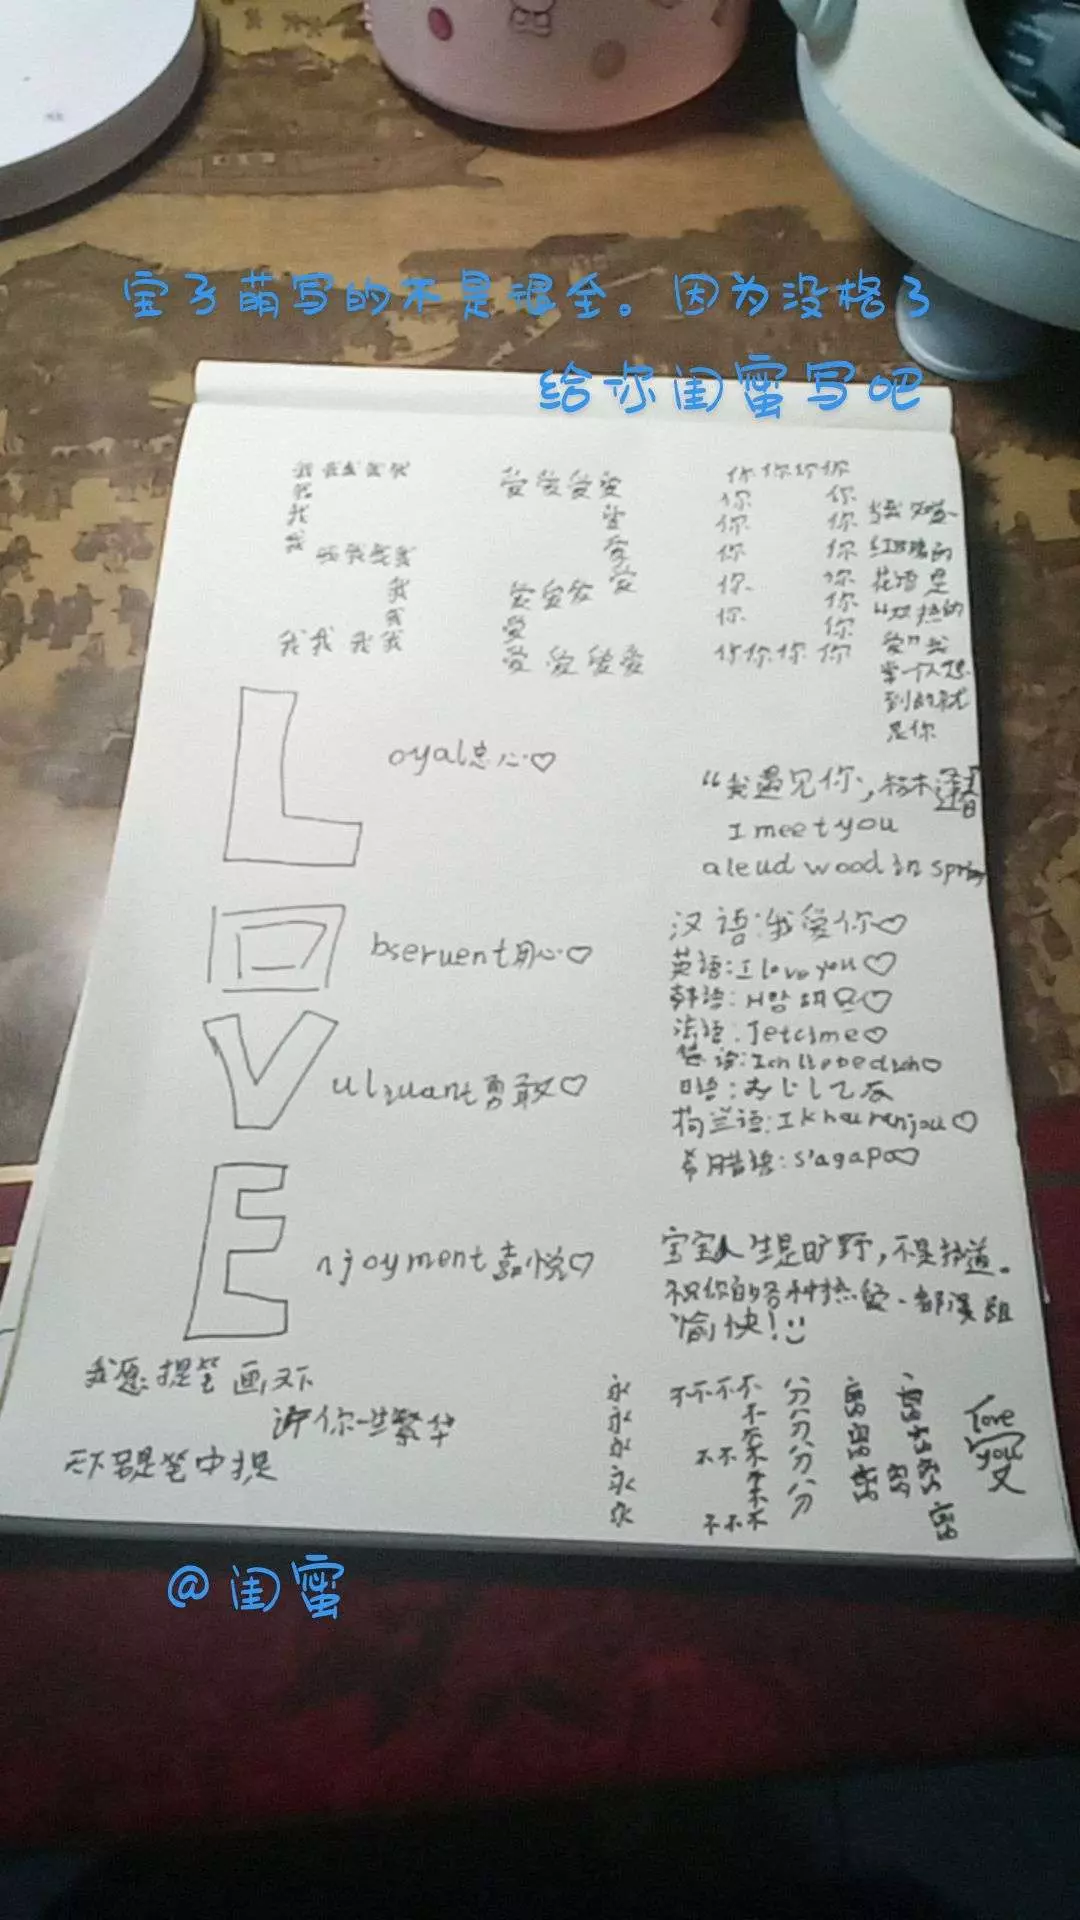 宝子萌写的不是很全。因为没格了
给你闺蜜写吧
我我我我我
我
我
我
我我我我
我
我
我我我我
爱爱爱爱
爱
爱
爱
爱爱爱
爱
爱爱爱爱
你你你你
你 你
你 你
你 你
你 你
你 你
你
你你你你
红玫瑰的
花语是
"炽热的
爱"我
第一个人想
到的就
是你
Loyal忠心♡
Obseruent用心♡
勇敢♡
Enjoyment喜悦♡
"我遇见你,枯木逢春
I meet you
a leud wood in spring
汉语:我爱你♡
英语:I love you♡
韩语:
法语:Jetcime♡
德语:
日语:
荷兰语:
希腊语:s'agapo♡
宝宝人生是旷野,不是轨道。
祝你的各种热爱,都
愉快!
我愿提笔画天下
许你一些繁华
天下若是笔中提
永
永
永
永
永
不不不不
不
不
不不不
不
不
不不不
分
分
分
分
分
离 离
离
离
离 离
离
love
you
爱
@闺蜜